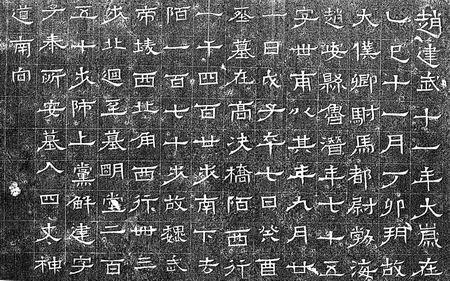 趙建武十一年大歲在
乙巳十一月丁卯朔故
大僕卿駙馬都尉勃海
趙安縣魯潛年七十五
字世甫以其年九月廿
一日戊子卒七日癸酉
葬墓在高決橋陌西行
一千四百廿步南下去
陌一百七十步故魏武
帝陵西北角西行卌三
步北迴至墓明堂二百
五十步師上黨解建字
子奉所安墓入四丈神
道南向